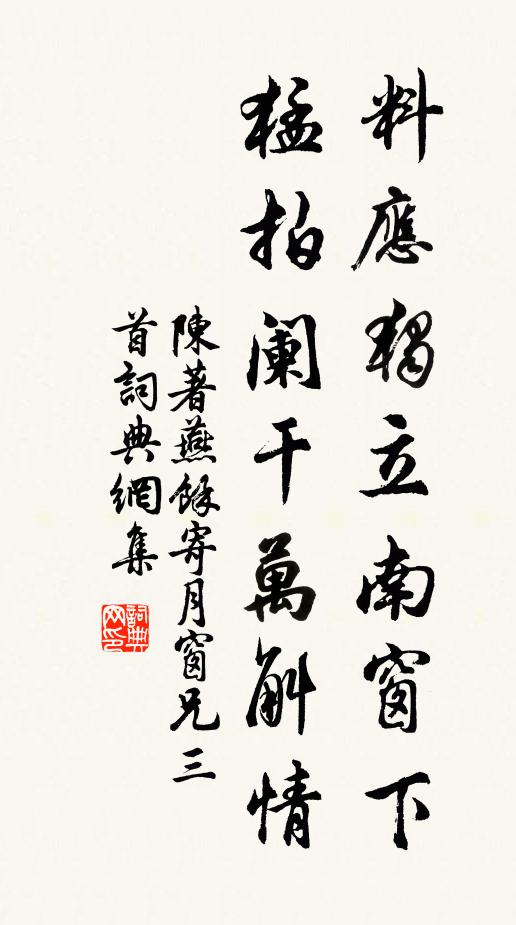 料應獨立南窗下
猛拍闌干萬斛情
陳著燕餘寄月窗兄三
首詞典網集
詞典
网印